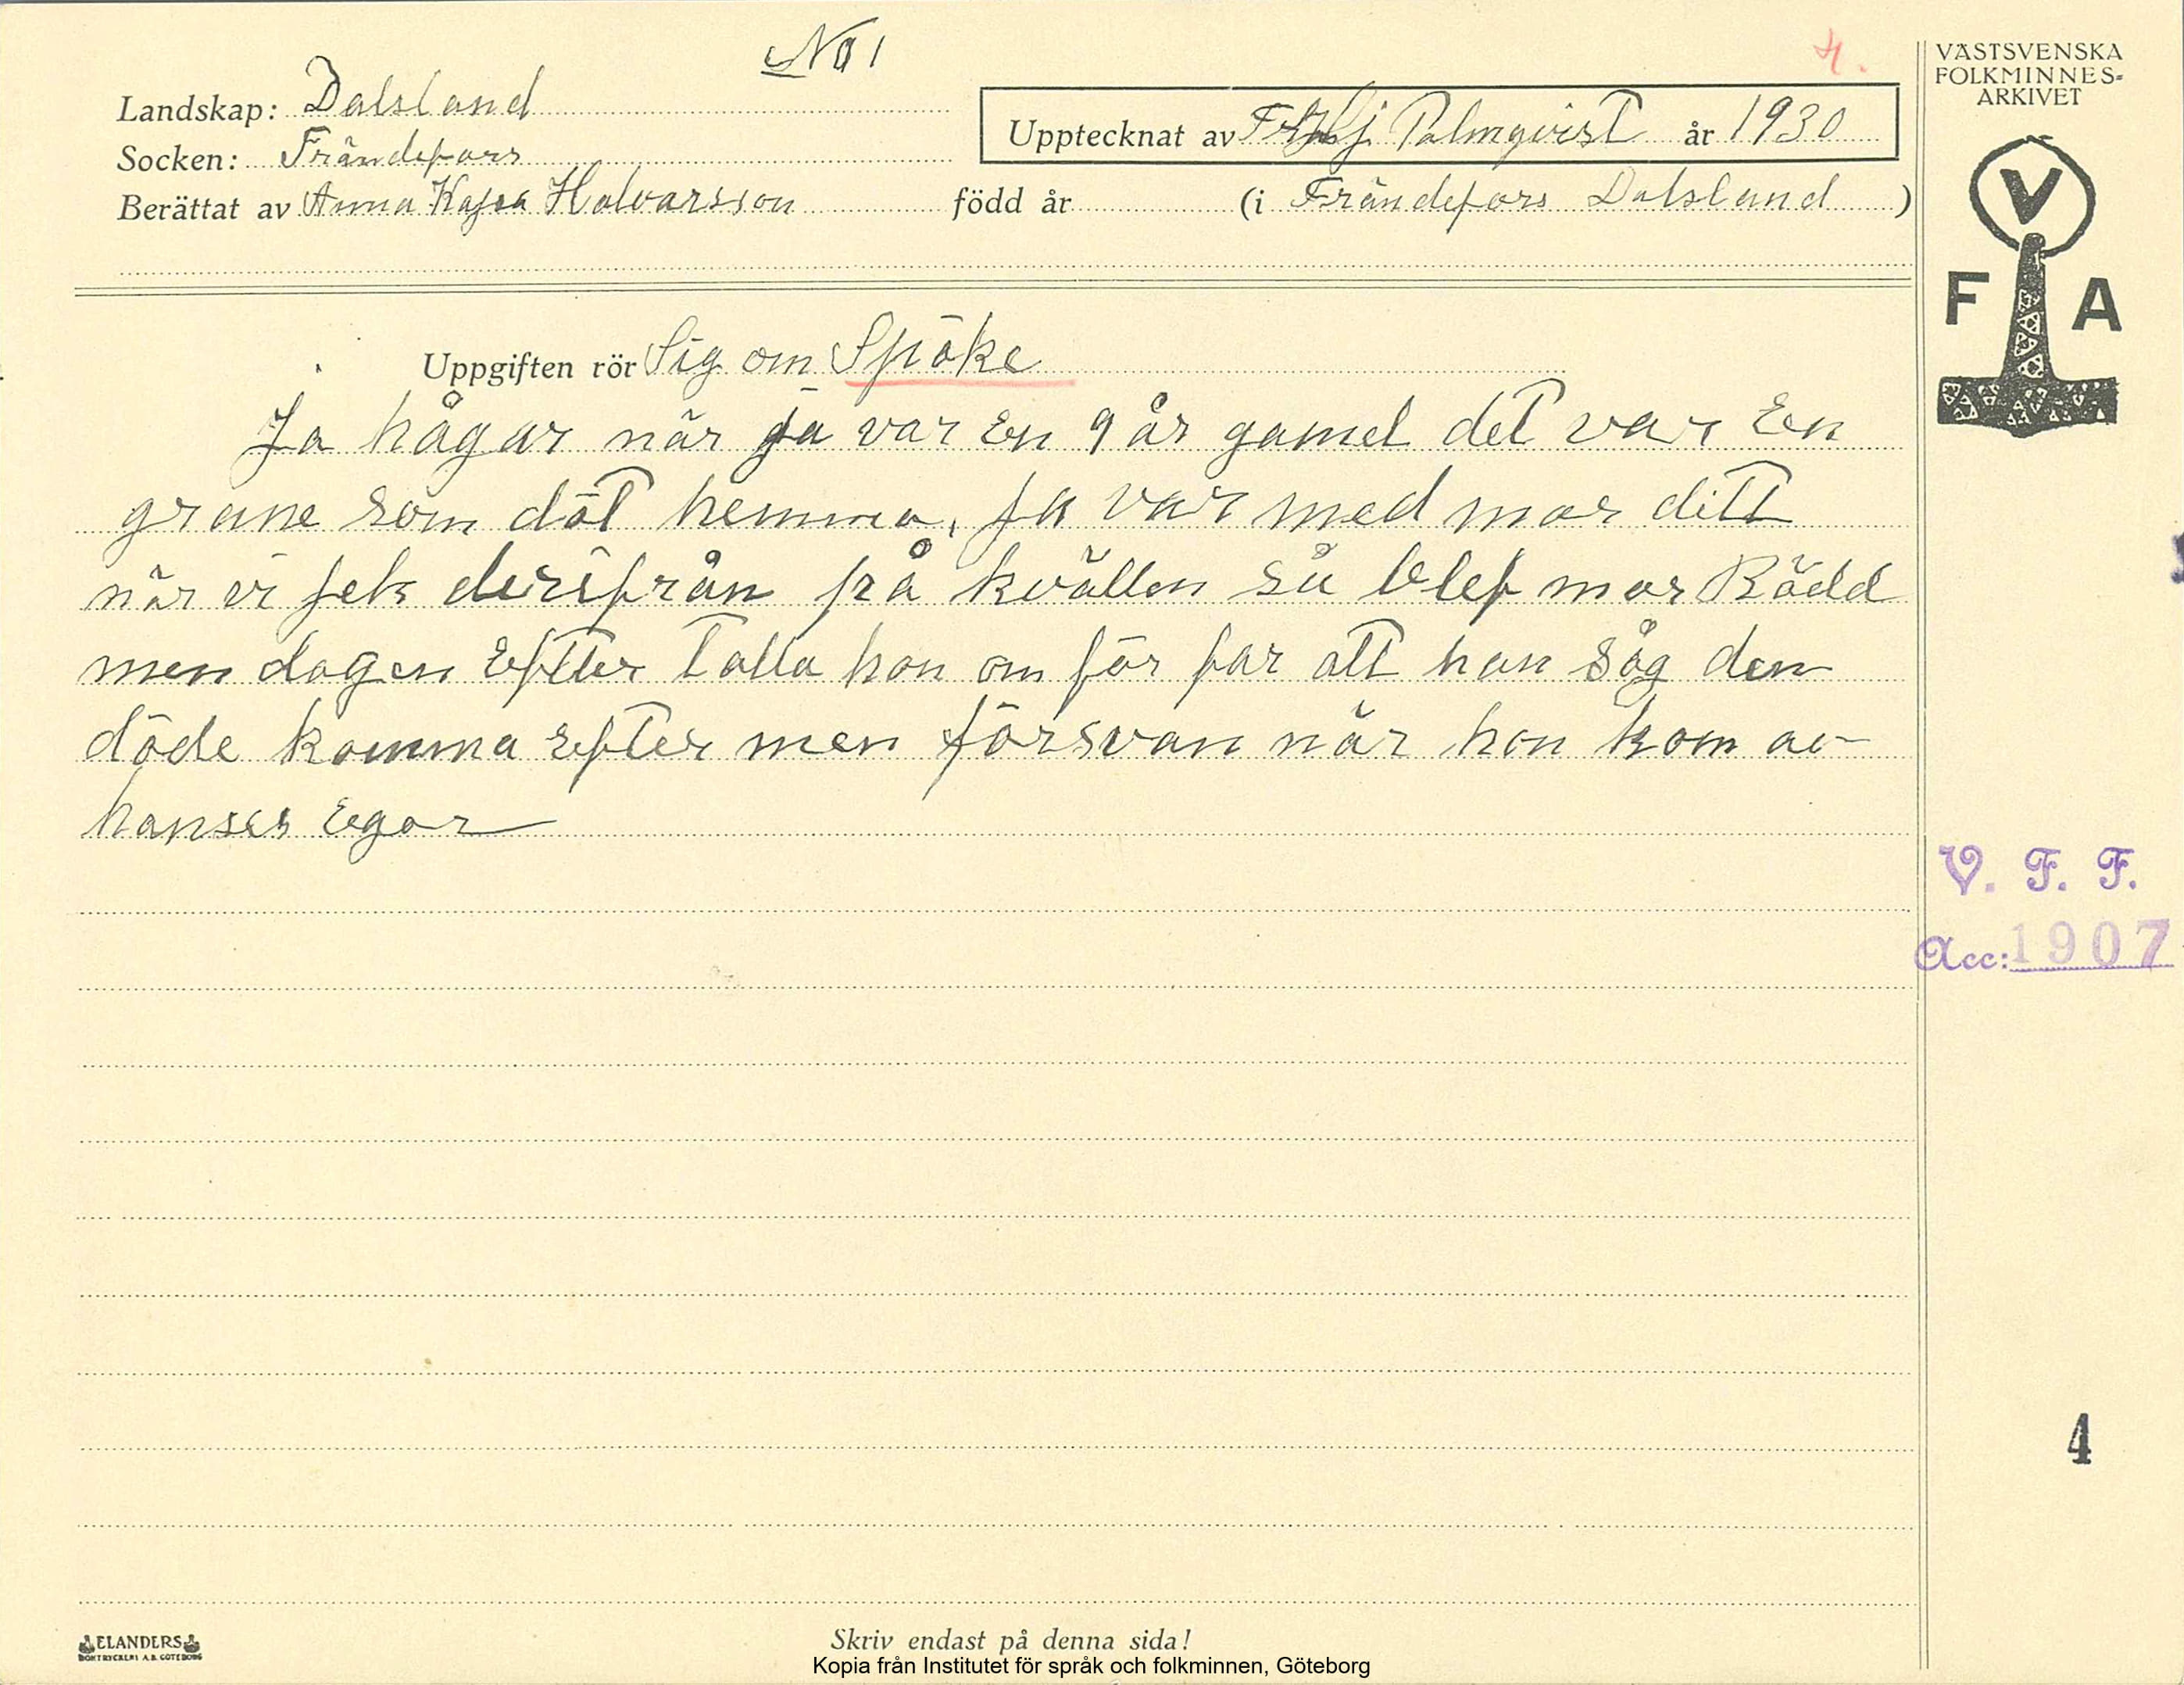 No 1
4.
Landskap: Dalsland
Socken: Frändefors
Upptecknat av Hj Palmqvist år 1930
Berättat av Anna Kajsa Halvarsson född år (i Frändefors Dalsland )
VÄSTSVENSKA
FOLKMINNES-
ARKIVET
V
F A
Uppgiften rör Sig om Spöke
Ja hågar när ja var En 9 år gamel det var En
grane som döt hemma, ja var med mor ditt
när vi jek derifrån på kvällen så blef mor Rädd
men dagen Efter talla hon om för far att hon såg den
döde komma Efter men försvan när hon kom av
hanses Egor
V. F. F.
Acc: 1907
4
ELANDERS
BOKTRYCKERI A.B. GÖTEBORG
Skriv endast på denna sida!
Kopia från Institutet för språk och folkminnen, Göteborg